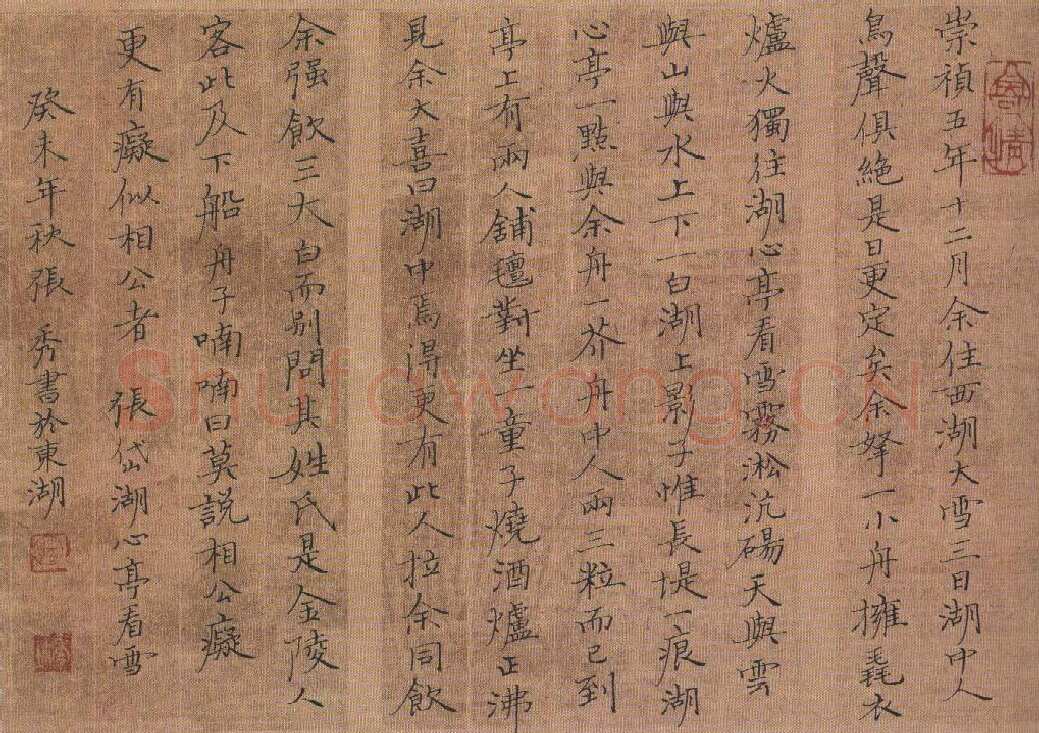 崇禎五年十二月余住西湖大雪三日湖中人
鳥聲俱絕是日更定矣余拏一小舟擁毳衣
爐火獨往湖心亭看雪霧淞沆碭天與雲
與山與水上下一白湖上影子惟長堤一痕湖
心亭一點與余舟一芥舟中人兩三粒而已到
亭上有兩人鋪氊對坐一童子燒酒爐正沸
見余大喜曰湖中焉得更有此人拉余同飲
余强飲三大白而别問其姓氏是金陵人
客此及下船舟子喃喃曰莫説相公癡
更有癡似相公者 張岱湖心亭看雪
癸未年秋張秀書於東湖
Shufawang.cn